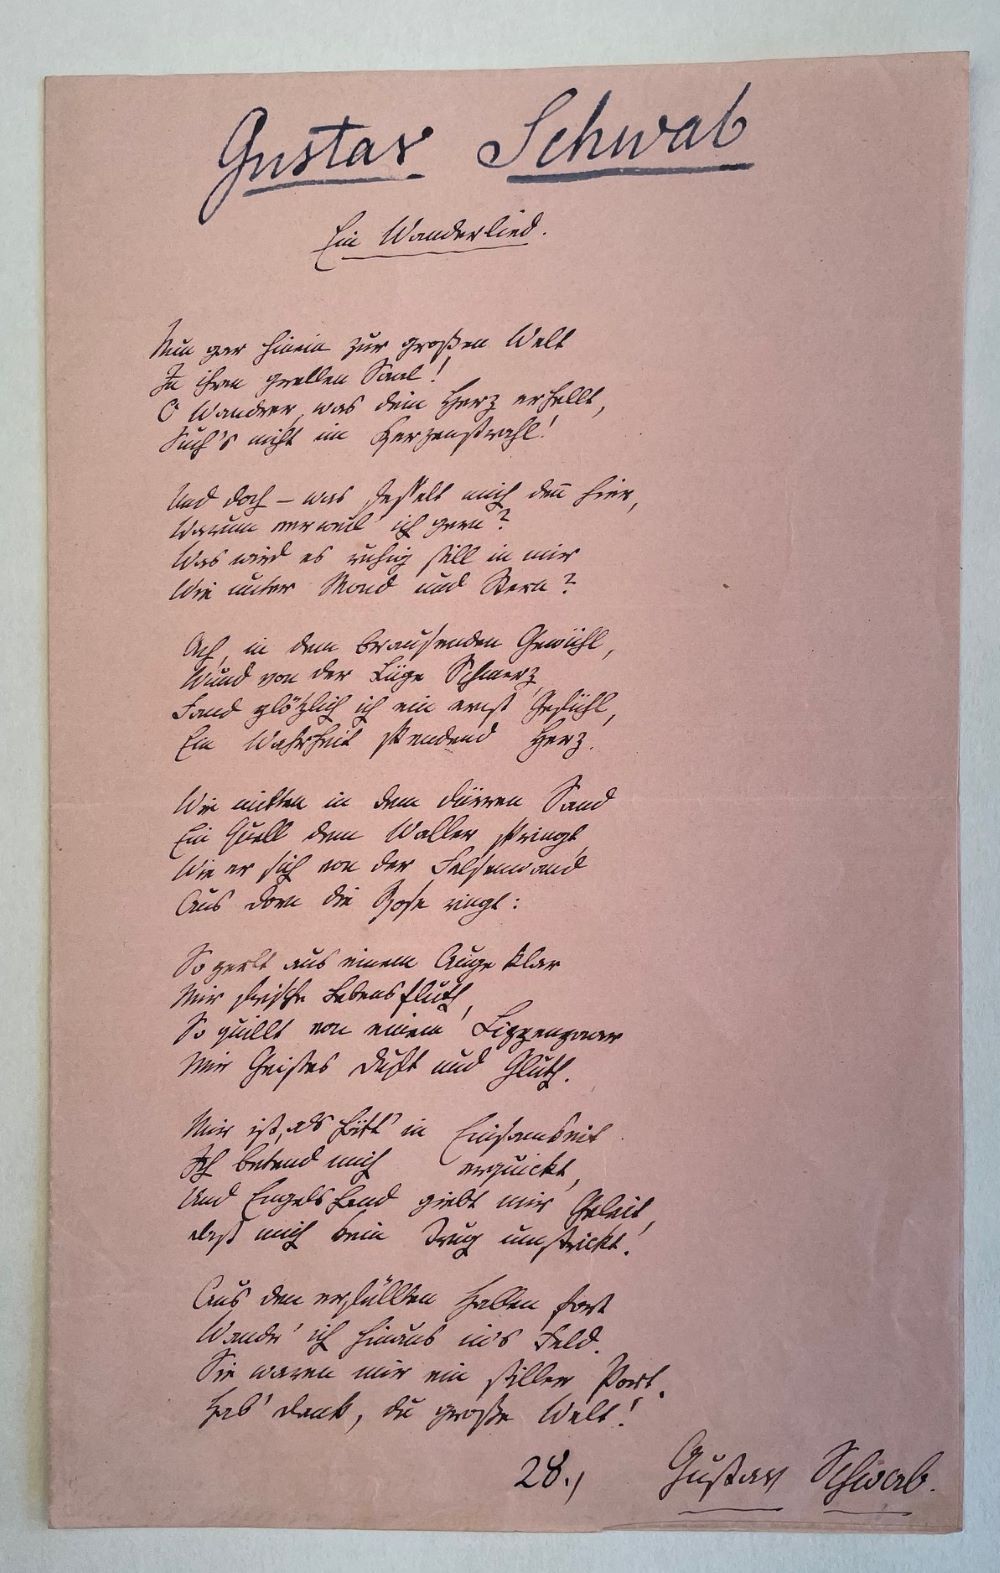 Gustav Schwab
Ein Wanderlied.
Nun gar hinein zur großen Welt
In ihren grellen Saal!
O Wandrer, was dein Herz erhellt,
Such's nicht im Kerzenstrahl!
Und doch – was fesselt mich den̅ hier,
Warum verweil' ich gern?
Was wird es ruhig still in mir
Wie unter Mond und Stern?
Ach, in dem brausenden Gewühl,
Wund von der Lüge Schmerz,
Fand plötzlich ich ein ernst Gefühl,
Ein Wahrheit spendend Herz.
Wie mitten in dem dürren Sand
Ein Quell dem Waller springt,
Wie er sich von der Felsenwand
Aus Dorn die Rose ringt:
So perlt aus einem Auge klar
Mir frische Lebensfluth,
So quillt von einem Lippenpaar
Mir Geistes Duft und Gluth.
Mir ist, als hätt' in Einsamkeit
Ich betend mich erquickt,
Und Engels Hand giebt mir Geleit,
Daß mich kein Trug umstrickt!
Aus den erfüllten Hallen fort
Wandr' ich hinaus in's Feld.
Sie waren mir ein stiller Port.
Hab' Dank, du große Welt!
28., Gustav Schwab.